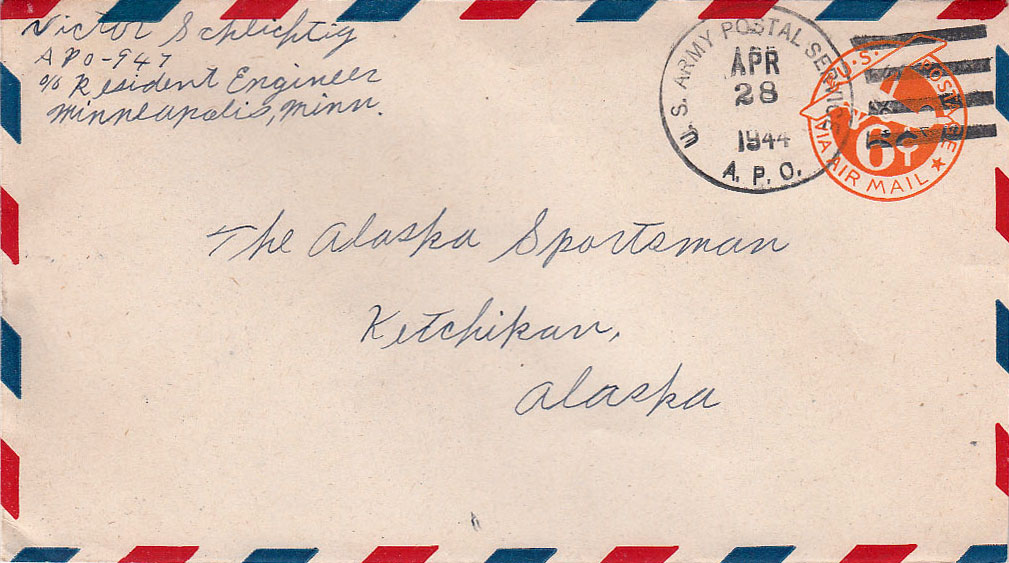 Victor Schlichtig
APO-947
c/o Resident Engineer
Minneapolis, Minn.
U. S. ARMY POSTAL SERVICE
APR
28
1944
A. P. O.
U.S. POSTAGE
6¢
VIA AIR MAIL
The Alaska Sportsman
Ketchikan,
Alaska